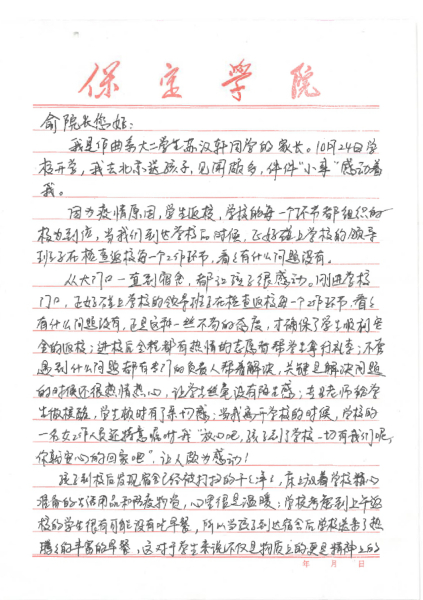 保定学院
俞院长您好：
我是作曲系大二学生苏汉轩同学的家长。10月24日学
校开学，我去北京送孩子，见闻颇多，件件“小事”感动着
我。
因为疫情原因，学生返校，学校的每一个环节都组织的
极为到位，当我们到达学校后时候，正好碰上学校的领导
班子在检查返校每一个工作环节，看看有什么问题没有。
从大门口一直到宿舍，都让孩子很感动。刚进学校
门口，正好碰上学校的领导班子在检查返校每一个工作环节，看看
有什么问题没有，正是这种一丝不苟的态度，才确保了学生顺利安
全的返校；进校后全程都有热情的志愿者帮学生拿行李；不管
遇到什么问题都有专门的负责人帮着解决，关键是解决问题
的时候还很热情热心，让学生丝毫没有陌生感；专业老师给学
生做提醒，学生顿时有了亲切感；当我离开学校的时候，学校的
一名女工作人员还特意嘱咐我“放心吧，孩子到了学校一切有我们呢，
你就安心的回家吧”，让人颇为感动！
孩子到校后发现宿舍已经被打扫的干干净净，床上放着学校精心
准备的生活用品和防疫物资，心里很是温暖；学校考虑到上午返
校的学生很有可能没有吃早餐，所以当孩子到达宿舍后学校送来了热
腾腾的丰富的早餐，这对于学生来说不仅是物质上的更是精神上的
年 月 日